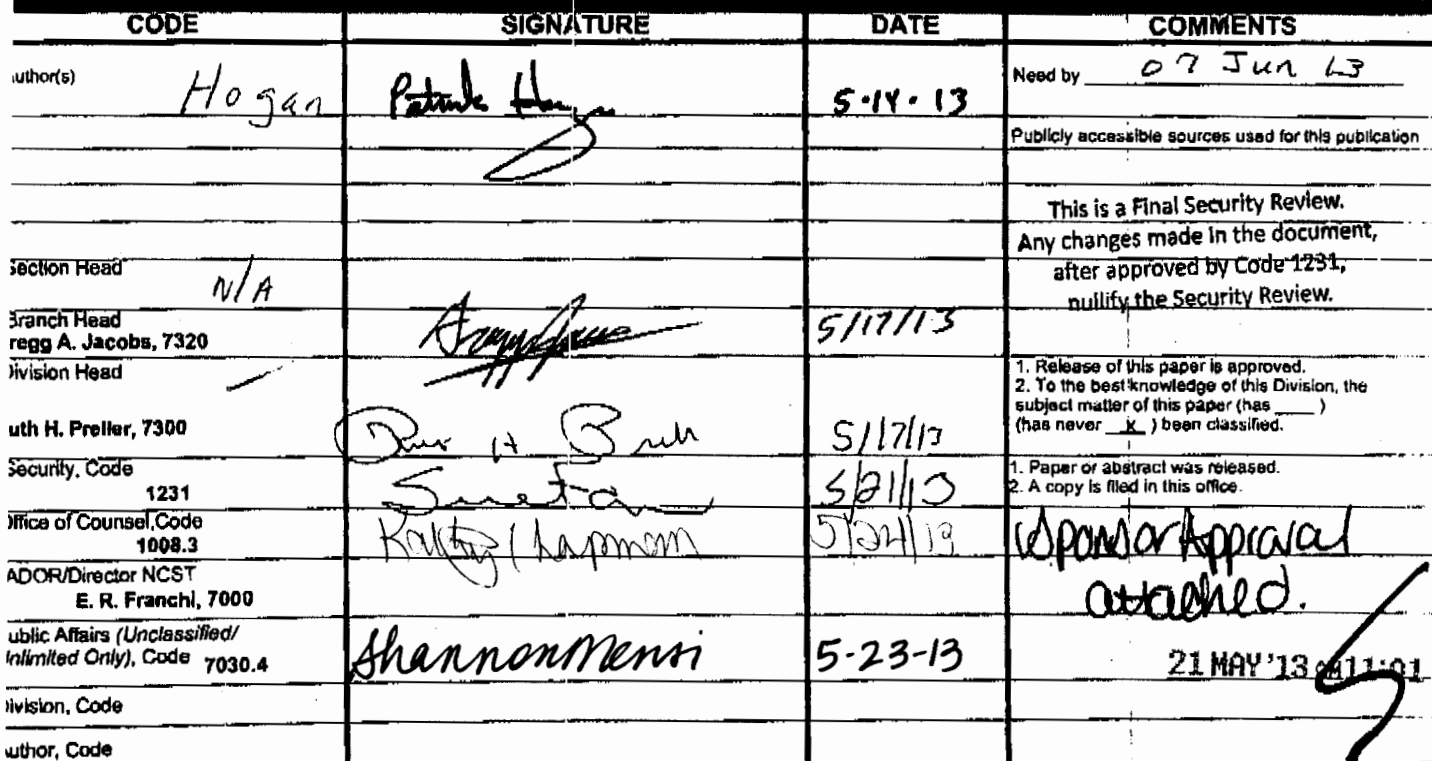 CODE SIGNATURE DATE COMMENTS
uthor(s) Hogan Patrick 5-14-13 Need by 07 Jun 13
Publicly accessible sources used for this publication
This is a Final Security Review.
Any changes made in the document,
after approved by Code 1231,
nullify the Security Review.
Section Head N/A
Branch Head
regg A. Jacobs, 7320 5/17/13
Division Head
1. Release of this paper is approved.
2. To the best knowledge of this Division, the
subject matter of this paper (has ____ )
(has never x ) been classified.
uth H. Preller, 7300 5/17/13
Security, Code
1231 5/21/13
1. Paper or abstract was released.
2. A copy is filed in this office.
Office of Counsel,Code
1008.3 Chapman 5/24/13
Sponsor Approval
attached.
ADOR/Director NCST
E. R. Franchi, 7000
ublic Affairs (Unclassified/
nlimited Only), Code 7030.4 Shannon Mensi 5-23-13
21 MAY '13 11:01
ivision, Code
uthor, Code